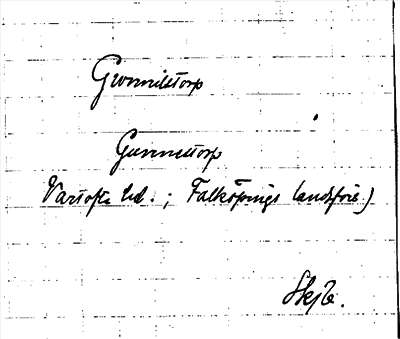 Gunnilstorp
Gunnestorp
Vartofta hd. ; Falköpings landsförs.)